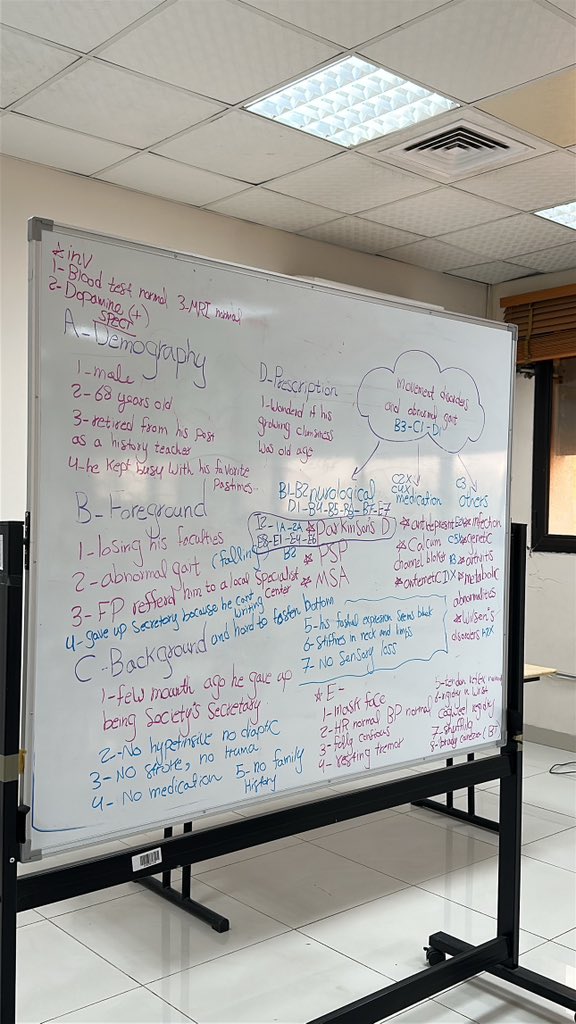 * inv
1- Blood test normal 3- MRI normal
2- Dopamine (+)
SPECT
A- Demography
1- male
2- 68 years old
3- retired from his post
as a history teacher
4- he kept busy with his favorite
Pastimes
B- Foreground
1- losing his faculties
2- abnormal gait (falling)
3- FP refferd him to a local Specialist
Center
4- gave up Secretary because he cant
writing
and hard to fasten bottom
5- his fashial expresion seems blank
6- Stiffnes in neck and limbs
7- No Sensory loss
C- Background
1- few mounth ago he gave up
being Society's Secretary
2- No hypetinsive no diaptic
3- No stroke, no truma
4- No medication 5- no family
History
D- Prescription
1- Wonderd if his
growing clumsiness
was old age
movement disorders
and abnormal gait
B3-C1-D1
B1-B2 nurological
D1-B4-B5-B6-B7-E7
I2-1A-2A * Parkinsons D
E8-E1-E4-E6
B2
* PSP
* MSA
C2X
C4X
medication
* antidepresent
* Calcum
channel bloker
* antiemetic
C3
others
* infection
* genetic
* artivitis
* metabolic
abnormalities
* Wilsen's
disorders
* E-
1- mask face
2- HR normal BP normal
3- fully concious
4- resting tremor
5- tendon reflex normal
6- rigidity in wrist
cogweel regidity
7- shuffling